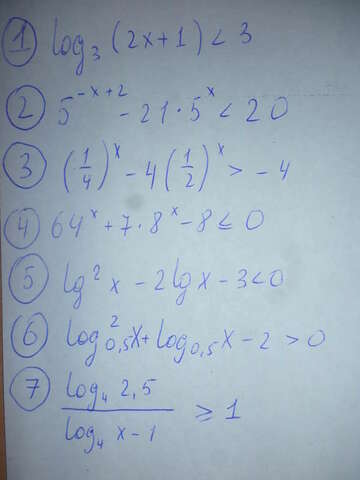 ① log₃ (2x+1) < 3
② 5^(-x+2) - 21 · 5^x < 20
③ (1/4)^x - 4(1/2)^x > -4
④ 64^x + 7 · 8^x - 8 ≤ 0
⑤ lg² x - 2 lg x - 3 < 0
⑥ log²₀,₅ x + log₀,₅ x - 2 > 0
⑦ log₄ 2,5 / log₄ x - 1 ≥ 1